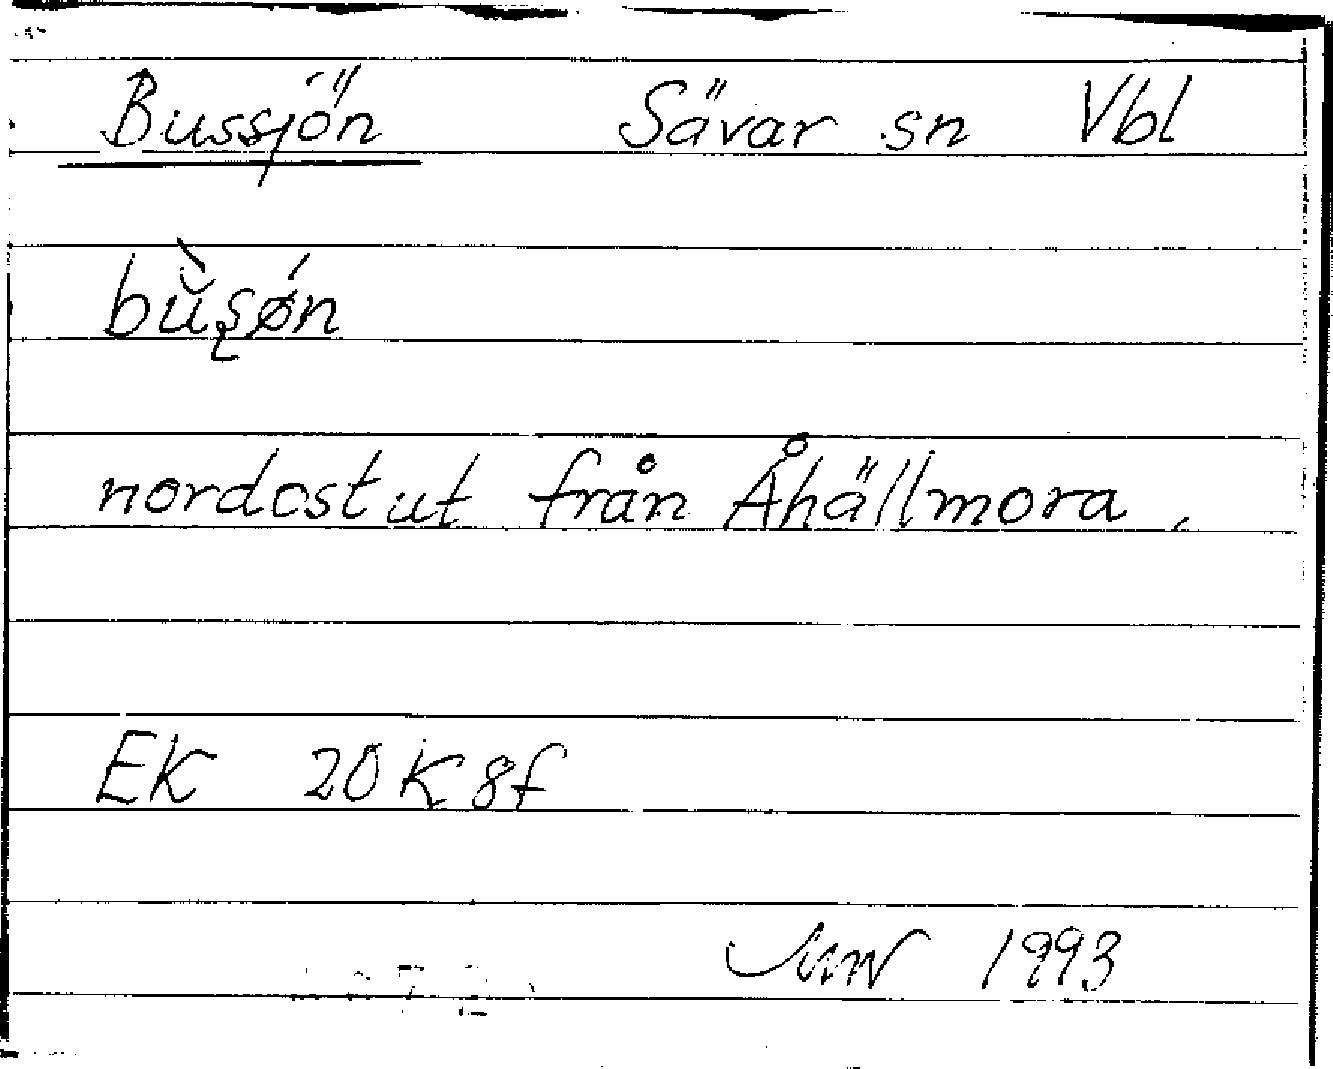 Bussjön Sävar sn Vbl
nordost ut från Åhällmora.
EK 20K8f
1993